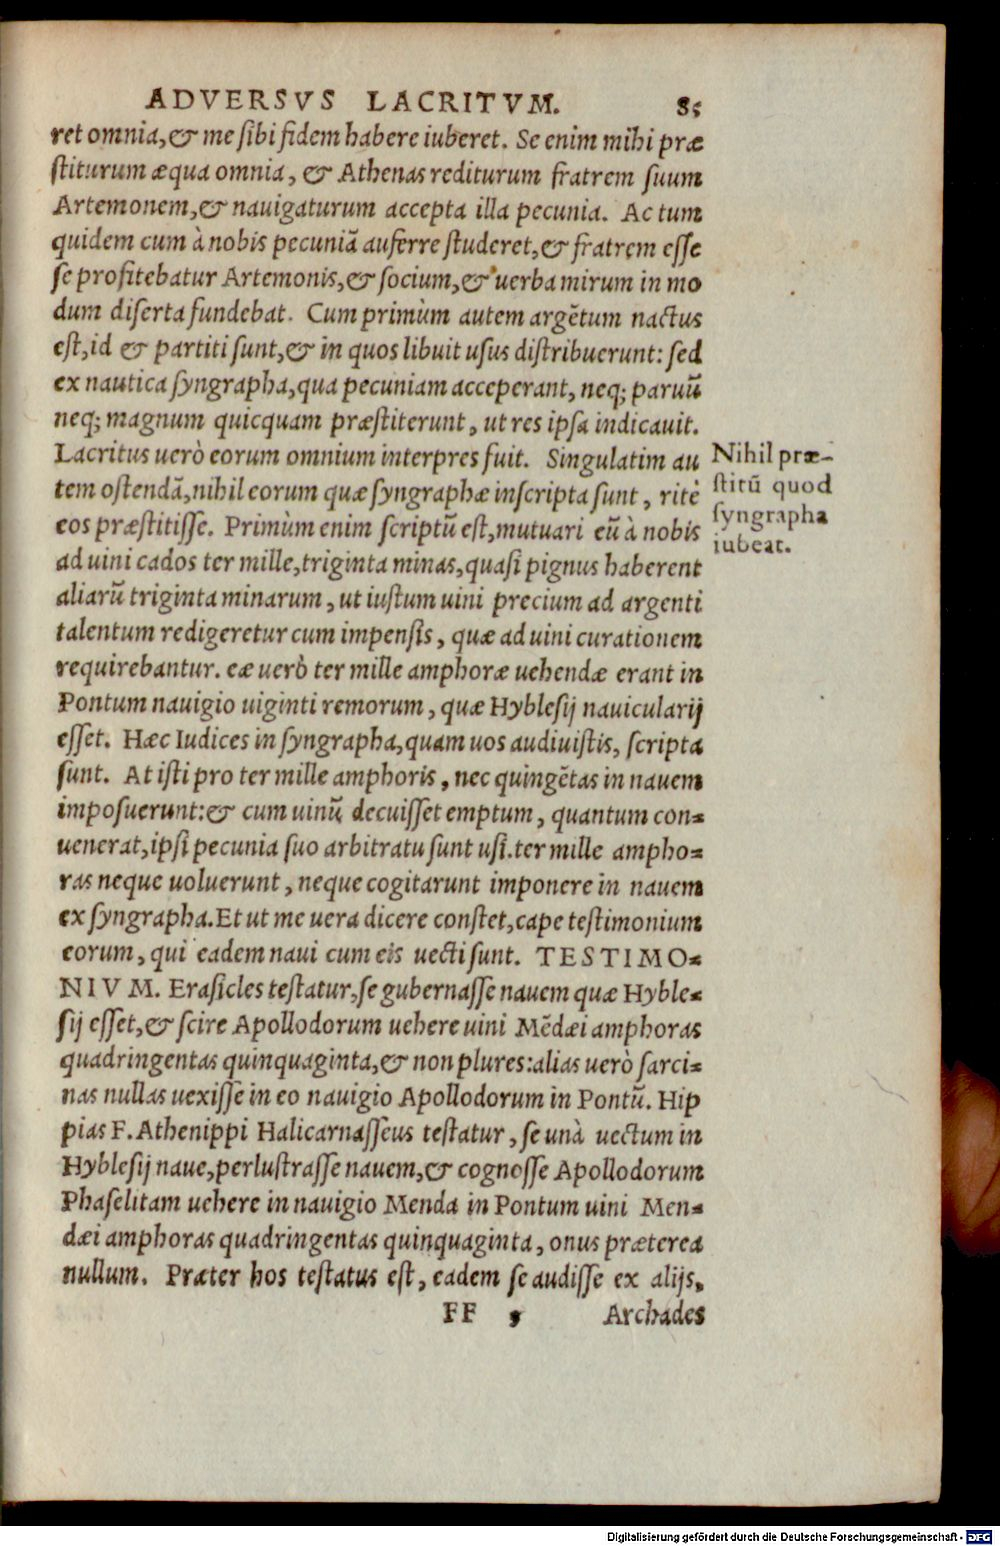 ADVERSVS LACRITVM. 85
ret omnia, & me sibi fidem habere iuberet. Se enim mihi præ
stiturum æqua omnia, & Athenas rediturum fratrem suum
Artemonem, & nauigaturum accepta illa pecunia. Ac tum
quidem cum à nobis pecuniã auferre studeret, & fratrem esse
se profitebatur Artemonis, & socium, & uerba mirum in mo
dum diserta fundebat. Cum primùm autem argẽtum nactus
est, id & partiti sunt, & in quos libuit usus distribuerunt: sed
ex nautica syngrapha, qua pecuniam acceperant, neq; paruũ
neq; magnum quicquam præstiterunt, ut res ipsa indicauit.
Lacritus uerò eorum omnium interpres fuit. Singulatim au
tem ostendã, nihil eorum quæ syngraphæ inscripta sunt, ritè
eos præstitisse. Primùm enim scriptũ est, mutuari eũ à nobis
ad uini cados ter mille, triginta minas, quasi pignus haberent
aliarũ triginta minarum, ut iustum uini precium ad argenti
talentum redigeretur cum impensis, quæ ad uini curationem
requirebantur. eæ uerò ter mille amphoræ uehendæ erant in
Pontum nauigio uiginti remorum, quæ Hyblesij nauicularij
esset. Hæc Iudices in syngrapha, quam uos audiuistis, scripta
sunt. At isti pro ter mille amphoris, nec quingẽtas in nauem
imposuerunt: & cum uinũ decuisset emptum, quantum con-
uenerat, ipsi pecunia suo arbitratu sunt usi. ter mille ampho-
ras neque uoluerunt, neque cogitarunt imponere in nauem
ex syngrapha. Et ut me uera dicere constet, cape testimonium
eorum, qui eadem naui cum eis uecti sunt. TESTIMO-
NIVM. Erasicles testatur, se gubernasse nauem quæ Hyble-
sij esset, & scire Apollodorum uehere uini Mẽdæi amphoras
quadringentas quinquaginta, & non plures: alias uerò sarci-
nas nullas uexisse in eo nauigio Apollodorum in Pontũ. Hip
pias F. Athenippi Halicarnasseus testatur, se unà uectum in
Hyblesij naue, perlustrasse nauem, & cognosse Apollodorum
Phaselitam uehere in nauigio Menda in Pontum uini Men-
dæi amphoras quadringentas quinquaginta, onus præterea
nullum. Præter hos testatus est, eadem se audisse ex alijs,
FF 5 Archades
Nihil præ-
stitũ quod
syngrapha
iubeat.
Digitalisierung gefördert durch die Deutsche Forschungsgemeinschaft - DFG